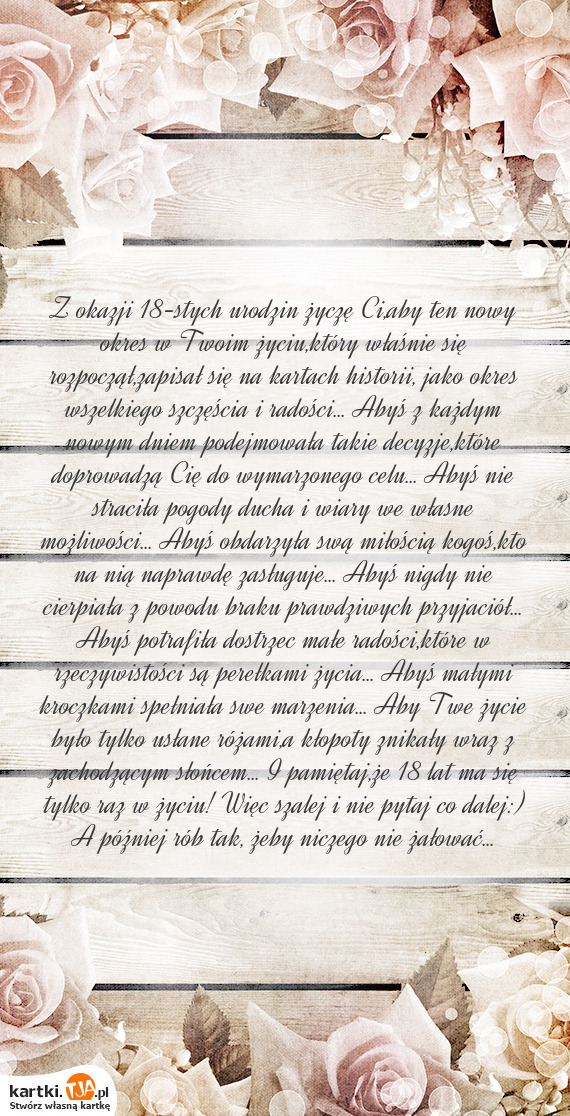 Z okazji 18-stych urodzin życzę Ci,aby ten nowy
okres w Twoim życiu,który właśnie się
rozpoczął,zapisał się na kartach historii, jako okres
wszelkiego szczęścia i radości... Abyś z każdym
nowym dniem podejmowała takie decyzje,które
doprowadzą Cię do wymarzonego celu... Abyś nie
straciła pogody ducha i wiary we własne
możliwości... Abyś obdarzyła swą miłością kogoś,kto
na nią naprawdę zasługuje... Abyś nigdy nie
cierpiała z powodu braku prawdziwych przyjaciół...
Abyś potrafiła dostrzec małe radości,które w
rzeczywistości są perełkami życia... Abyś małymi
kroczkami spełniała swe marzenia... Aby Twe życie
było tylko usłane różami,a kłopoty znikały wraz z
zachodzącym słońcem... I pamiętaj,że 18 lat ma się
tylko raz w życiu! Więc szalej i nie pytaj co dalej:)
A później rób tak, żeby niczego nie żałować...
kartki.TJA.pl
Stwórz własną kartkę